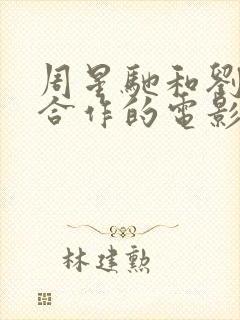 周星馳和劉
合作的電影
林建勲